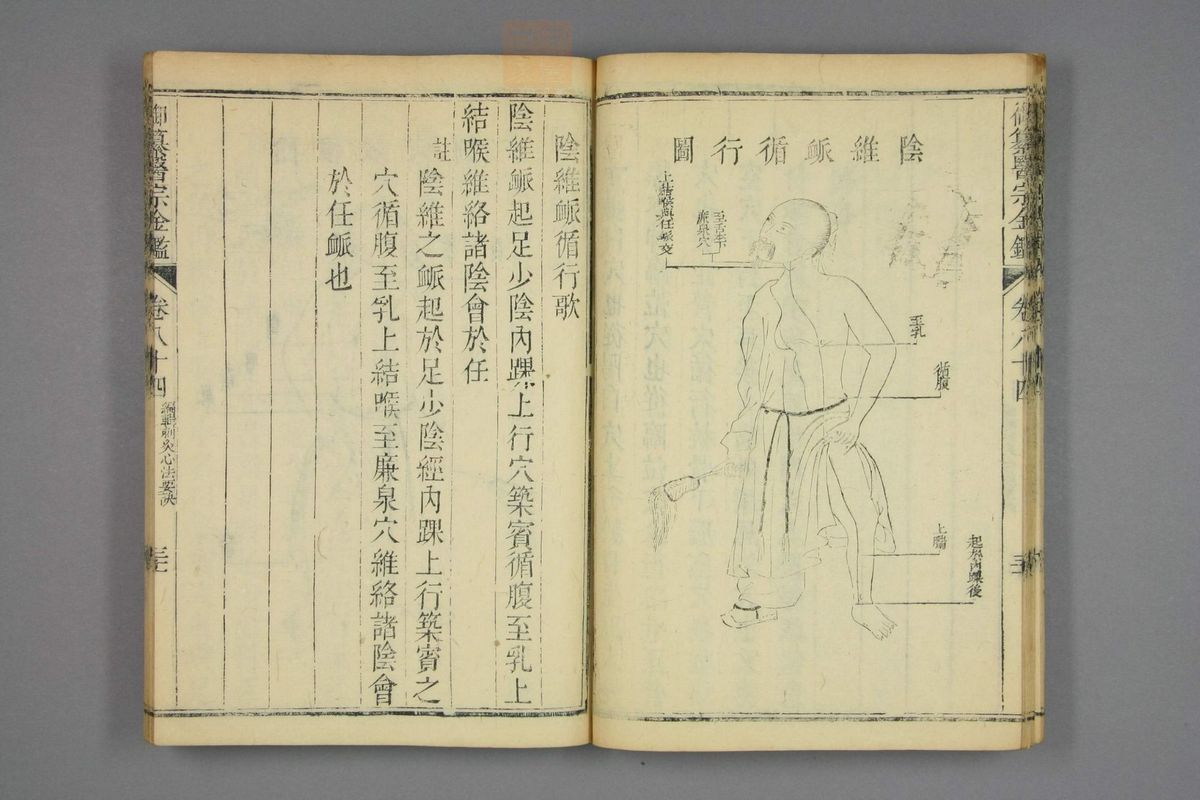 陰維䘑循行圖
上結喉與任䘑交
至舌本下
廉泉穴
至乳
循腹
上腨
起然內踝後
卷八十四
陰維䘑循行歌
陰維䘑起足少陰內踝上行穴築賓循腹至乳上
結喉維絡諸陰會於任
註
陰維之䘑起於足少陰經內踝上行築賓之
穴循腹至乳上結喉至廉泉穴維絡諸陰會
於任䘑也
御纂醫宗金鑑
卷八十四
編輯刺灸心法要訣